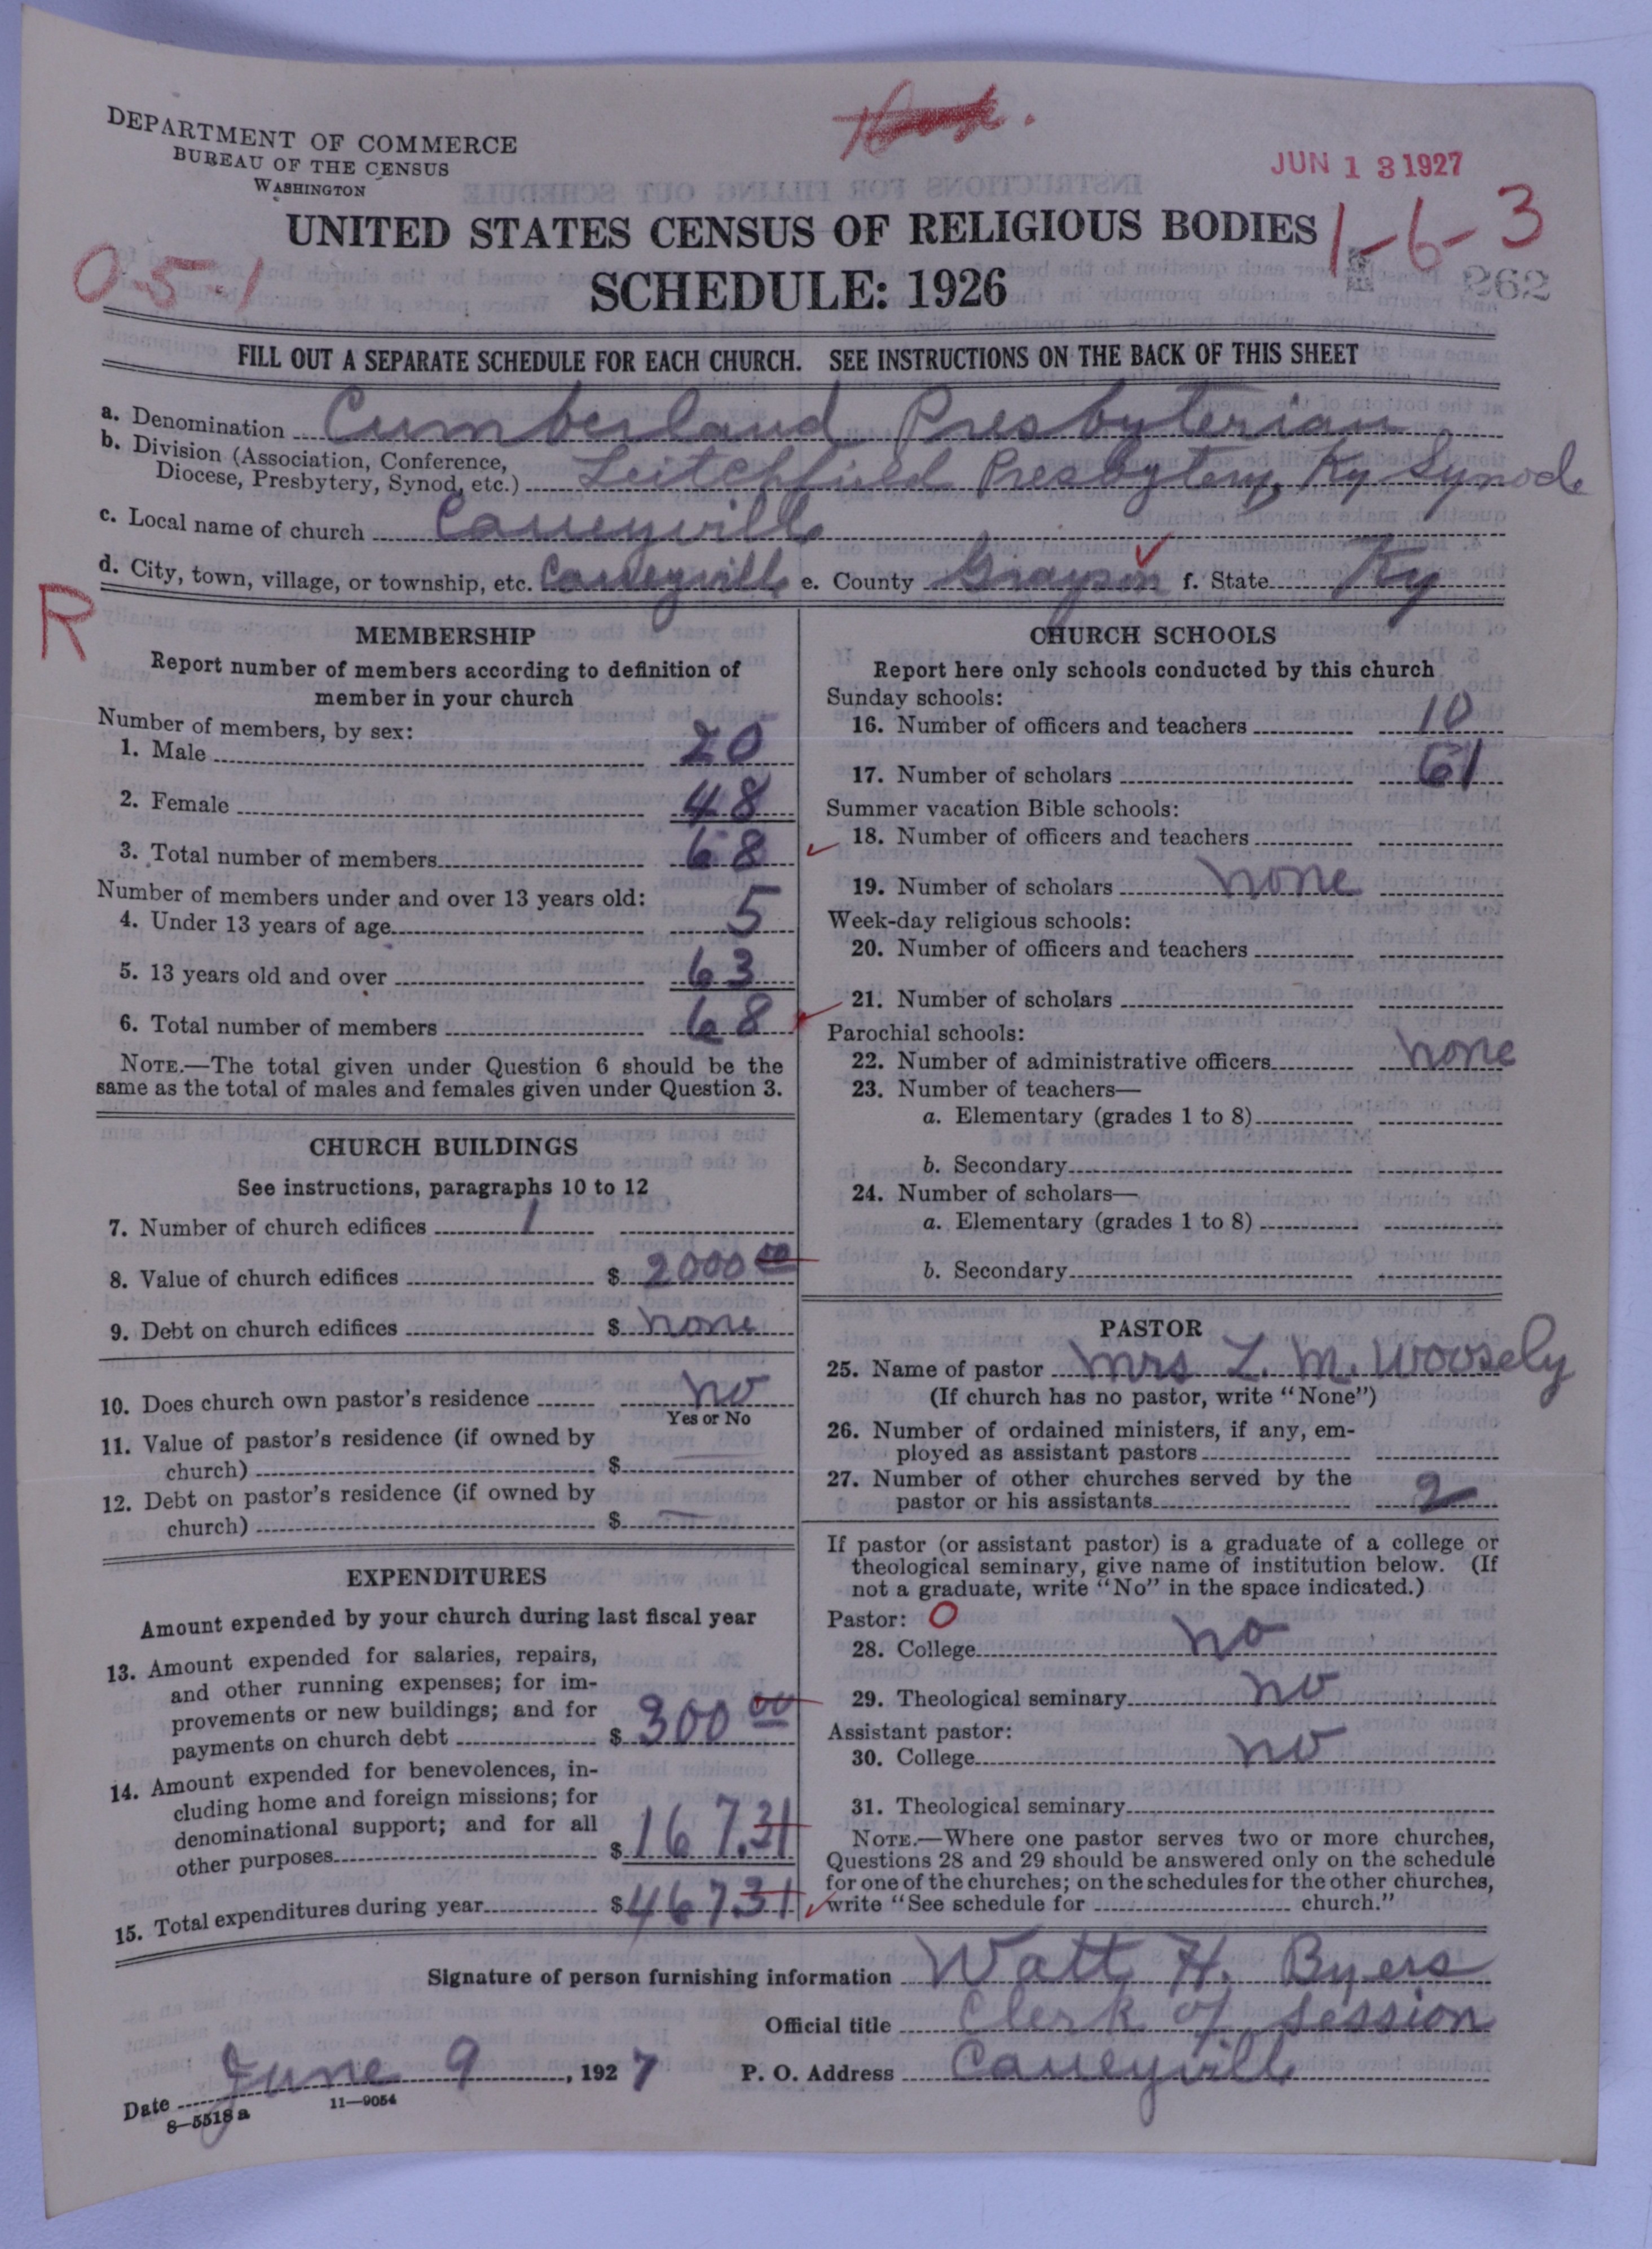 DEPARTMENT OF COMMERCE
BUREAU OF THE CENSUS
WASHINGTON
JUN 13 1927
UNITED STATES CENSUS OF RELIGIOUS BODIES
1-6-3
0-5-1
SCHEDULE: 1926
262
FILL OUT A SEPARATE SCHEDULE FOR EACH CHURCH. SEE INSTRUCTIONS ON THE BACK OF THIS SHEET
a. Denomination Cumberland Presbyterian
b. Division (Association, Conference, Diocese, Presbytery, Synod, etc.) Leitchfield Presbytery, Ky Synod
c. Local name of church Caneyville
d. City, town, village, or township, etc. Caneyville e. County Grayson f. State Ky
R
MEMBERSHIP
Report number of members according to definition of
member in your church
Number of members, by sex:
1. Male 20
2. Female 48
3. Total number of members 68
Number of members under and over 13 years old:
4. Under 13 years of age 5
5. 13 years old and over 63
6. Total number of members 68
NOTE.—The total given under Question 6 should be the
same as the total of males and females given under Question 3.
CHURCH BUILDINGS
See instructions, paragraphs 10 to 12
7. Number of church edifices 1
8. Value of church edifices $ 2000 00
9. Debt on church edifices $ none
10. Does church own pastor's residence no
Yes or No
11. Value of pastor's residence (if owned by
church) $
12. Debt on pastor's residence (if owned by
church) $
EXPENDITURES
Amount expended by your church during last fiscal year
13. Amount expended for salaries, repairs,
and other running expenses; for im-
provements or new buildings; and for
payments on church debt $ 300 00
14. Amount expended for benevolences, in-
cluding home and foreign missions; for
denominational support; and for all
other purposes $ 167.31
15. Total expenditures during year $ 467.31
CHURCH SCHOOLS
Report here only schools conducted by this church
Sunday schools:
16. Number of officers and teachers 10
17. Number of scholars 61
Summer vacation Bible schools:
18. Number of officers and teachers
19. Number of scholars none
Week-day religious schools:
20. Number of officers and teachers
21. Number of scholars
Parochial schools:
22. Number of administrative officers none
23. Number of teachers—
a. Elementary (grades 1 to 8)
b. Secondary
24. Number of scholars—
a. Elementary (grades 1 to 8)
b. Secondary
PASTOR
25. Name of pastor Mrs L. M. Woosely
(If church has no pastor, write "None")
26. Number of ordained ministers, if any, em-
ployed as assistant pastors
27. Number of other churches served by the
pastor or his assistants 2
If pastor (or assistant pastor) is a graduate of a college or
theological seminary, give name of institution below. (If
not a graduate, write "No" in the space indicated.)
Pastor: O
28. College no
29. Theological seminary no
Assistant pastor:
30. College no
31. Theological seminary
NOTE.—Where one pastor serves two or more churches,
Questions 28 and 29 should be answered only on the schedule
for one of the churches; on the schedules for the other churches,
write "See schedule for church."
Signature of person furnishing information Watt H. Byers
Official title Clerk of Session
Date June 9, 1927 P. O. Address Caneyville
8—5518 a 11—9054